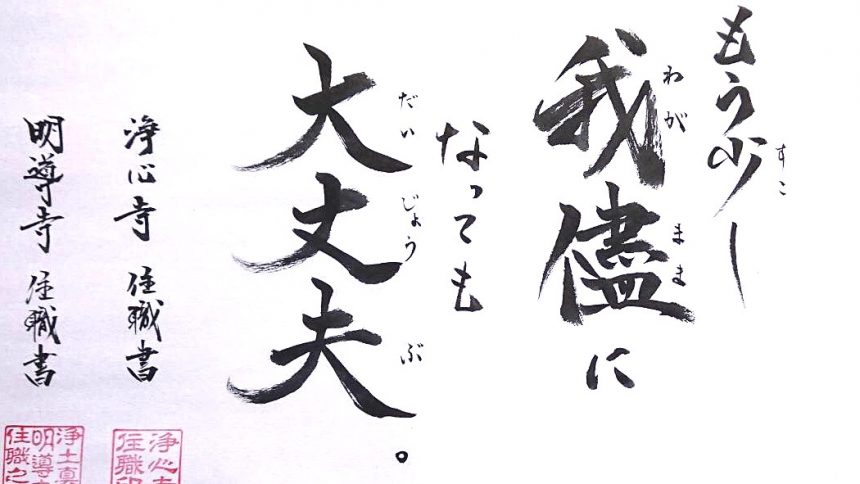 もう少し
すこ
我儘に
わがまま
なっても
大丈夫。
だいじょうぶ
浄心寺 住職書
明導寺 住職書
浄心寺
住職印
浄土真
明導寺
住職之